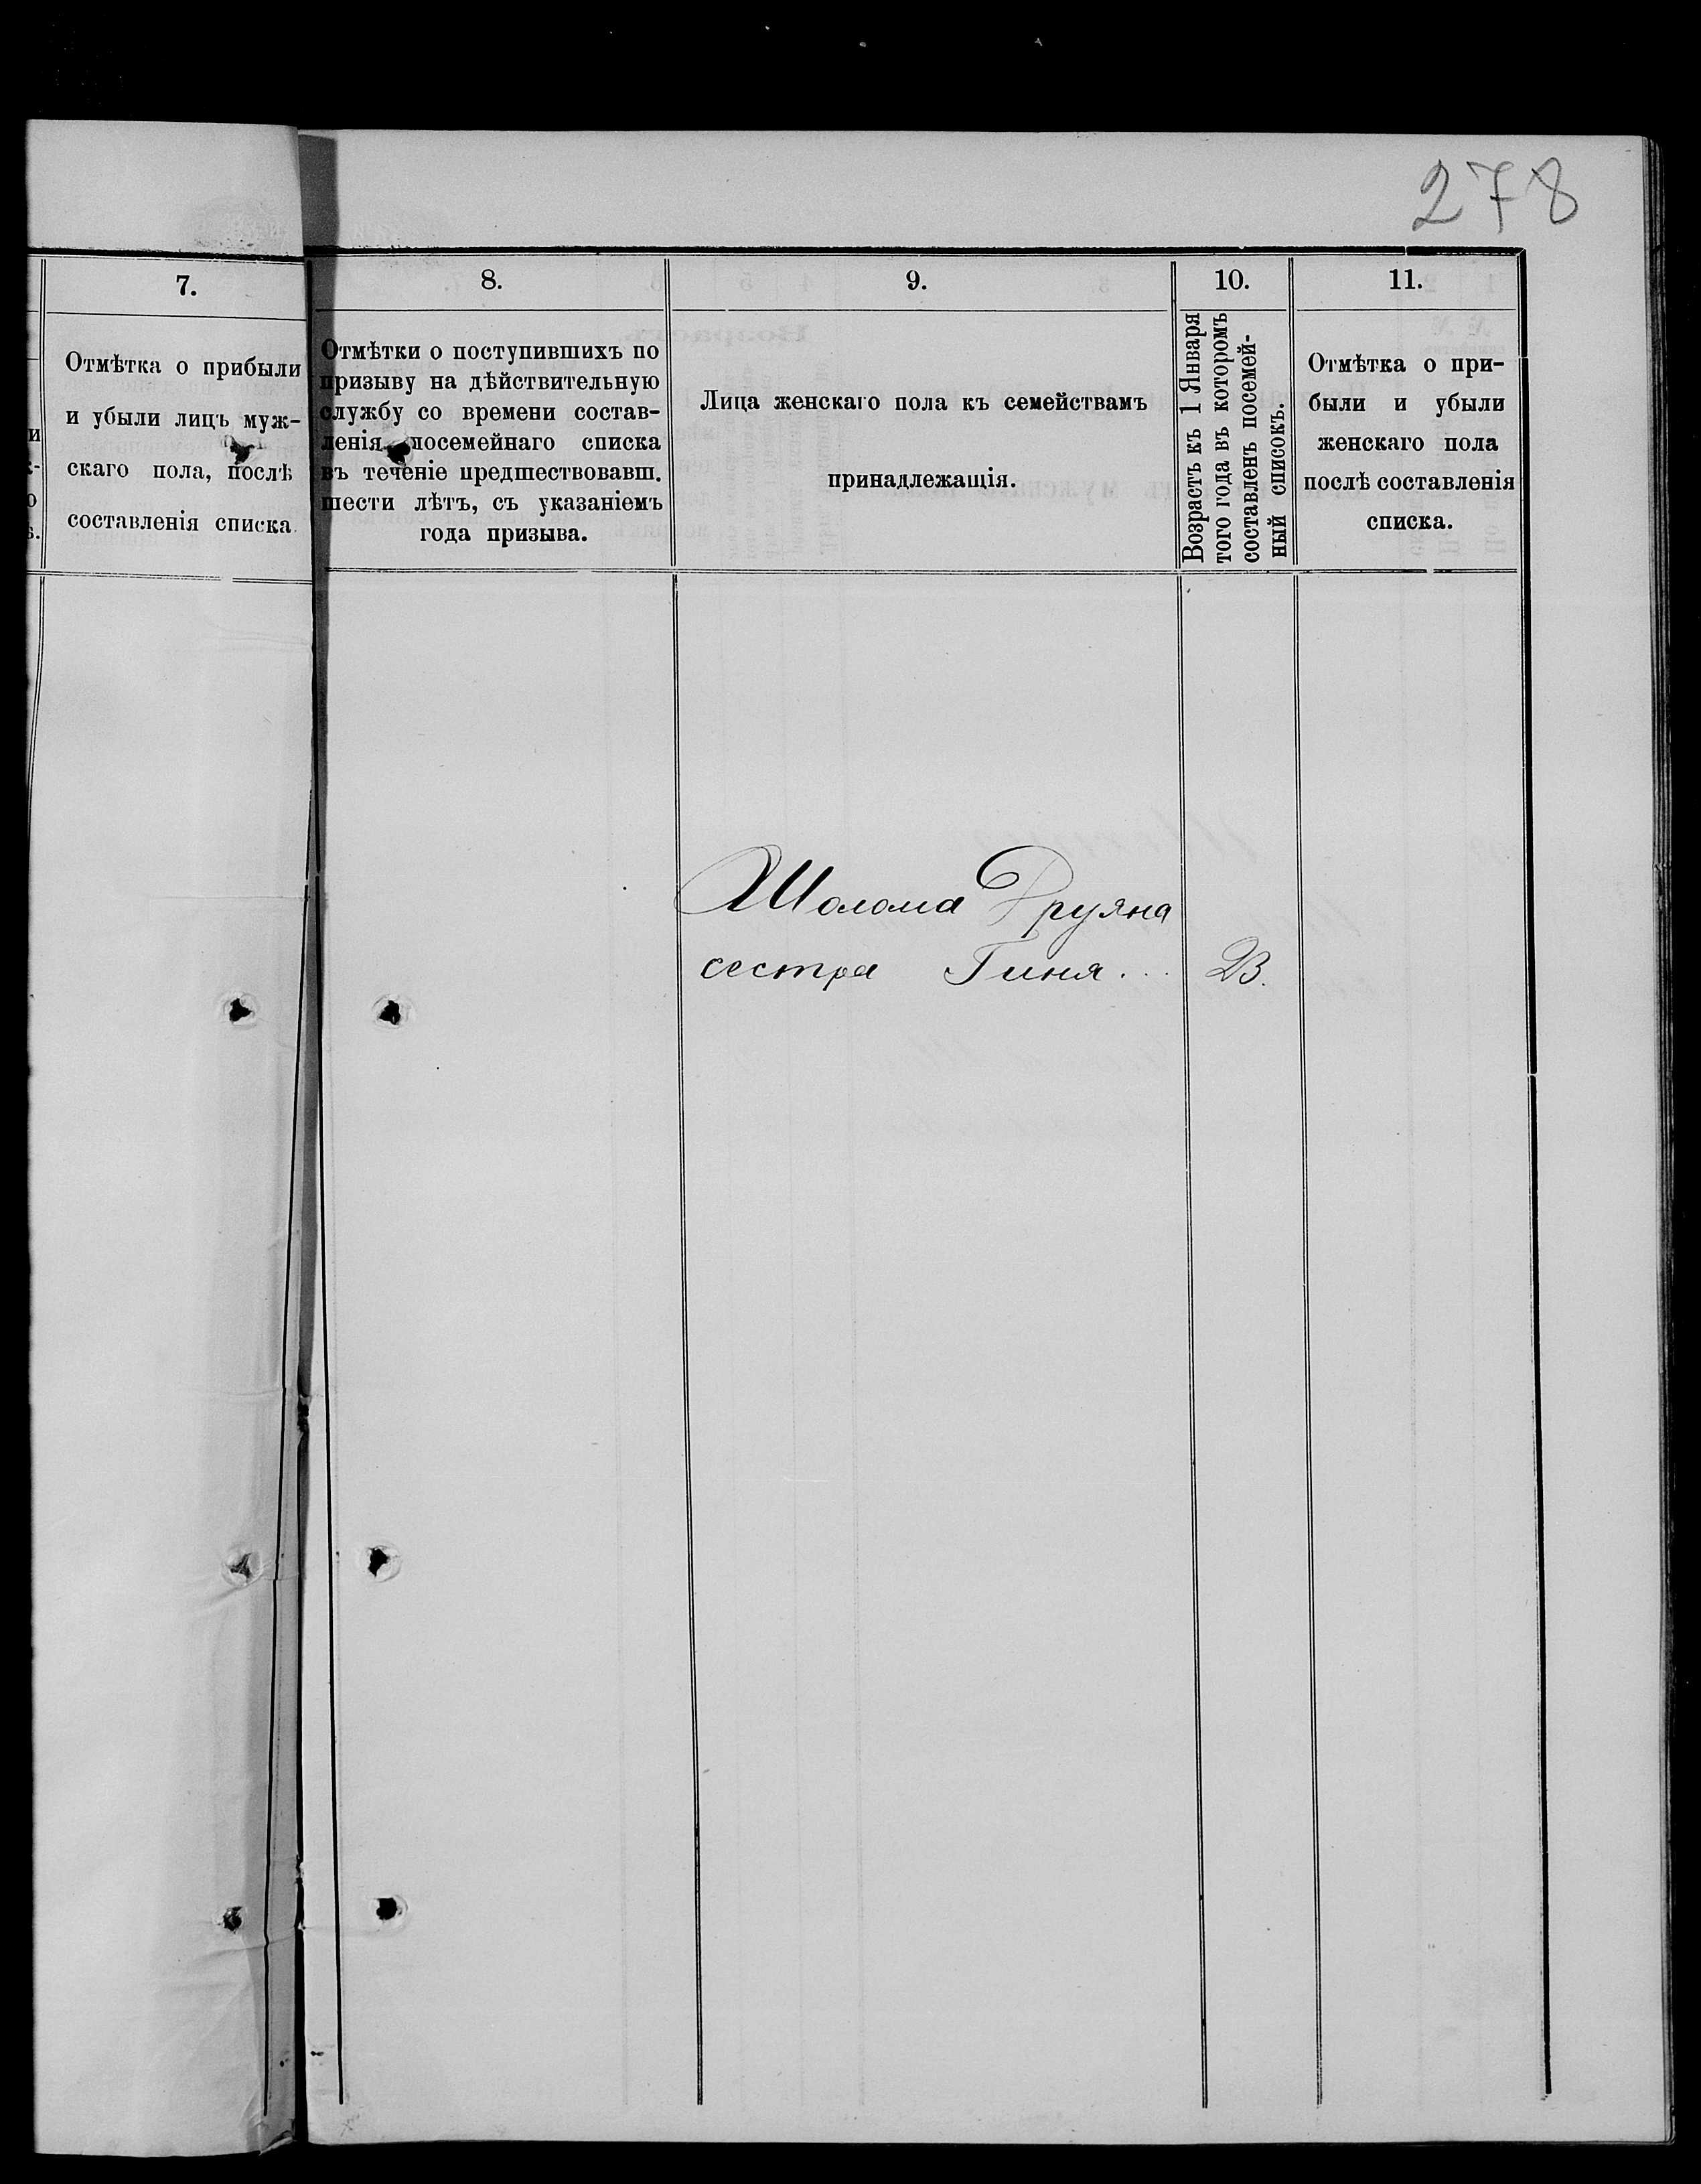 278
7.
Отмѣтка о прибыли
и убыли лицъ муж-
скаго пола, послѣ
составленія списка.
8.
Отмѣтки о поступившихъ по
призыву на дѣйствительную
службу со времени состав-
ленія посемейнаго списка
въ теченіе предшествовавш.
шести лѣтъ, съ указаніемъ
года призыва.
9.
Лица женскаго пола къ семействамъ
принадлежащія.
10.
Возрастъ къ 1 Января
того года въ которомъ
составленъ посемей-
ный списокъ.
11.
Отмѣтка о при-
были и убыли
женскаго пола
послѣ составленія
списка.
Шолома Друяна
сестра Гиня... 23.